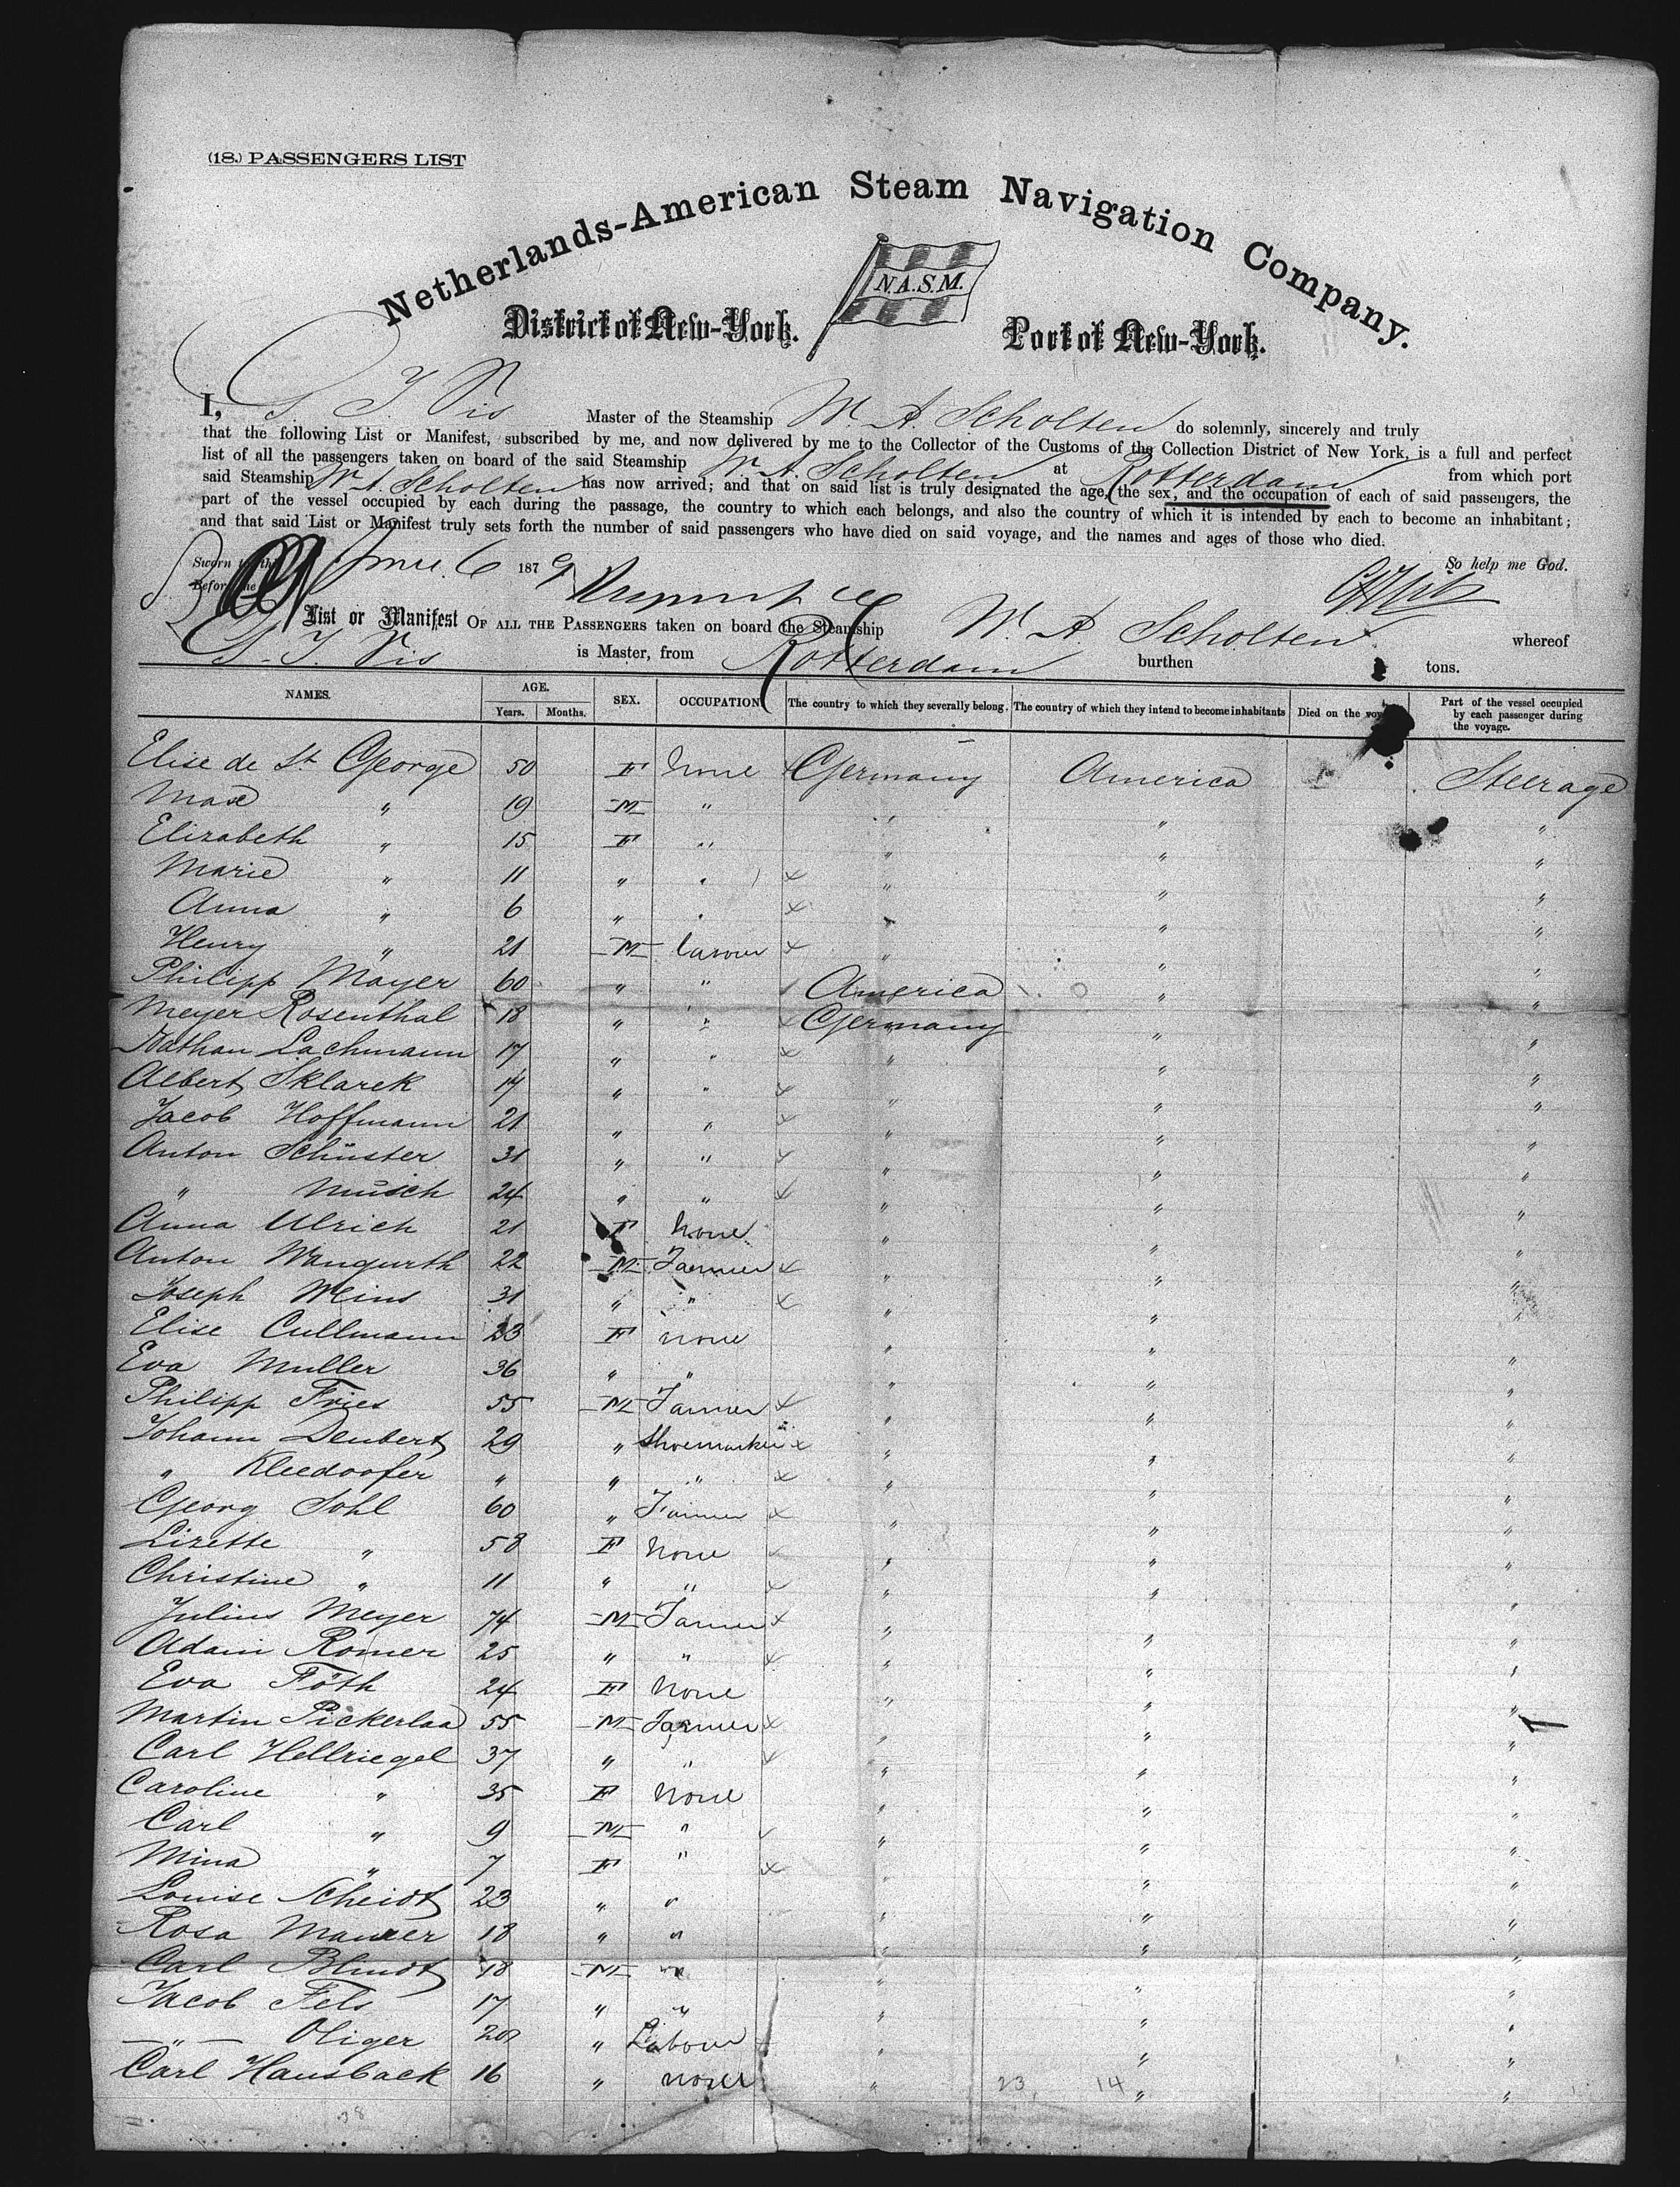 (18.) PASSENGERS LIST
Netherlands-American Steam Navigation Company.
N.A.S.M.
District of New-York. Port of New-York.
I, G. J. Vis Master of the Steamship W. A. Scholten do solemnly, sincerely and truly
that the following List or Manifest, subscribed by me, and now delivered by me to the Collector of the Customs of the Collection District of New York, is a full and perfect
list of all the passengers taken on board of the said Steamship W. A. Scholten at Rotterdam from which port
said Steamship W. A. Scholten has now arrived; and that on said list is truly designated the age, the sex, and the occupation of each of said passengers, the
part of the vessel occupied by each during the passage, the country to which each belongs, and also the country of which it is intended by each to become an inhabitant;
and that said List or Manifest truly sets forth the number of said passengers who have died on said voyage, and the names and ages of those who died.
Sworn to this June 6 1879 So help me God.
Before me
List or Manifest OF ALL THE PASSENGERS taken on board the Steamship W. A. Scholten whereof
G. J. Vis is Master, from Rotterdam burthen tons.
NAMES. AGE. Years. Months. SEX. OCCUPATION The country to which they severally belong. The country of which they intend to become inhabitants Died on the voy Part of the vessel occupied by each passenger during the voyage.
Elise de St. George 50 F None Germany America Steerage
Max " 19 M " " " "
Elizabeth " 15 F " " " "
Marie " 11 " " " " "
Anna " 6 " " " " "
Henry " 21 M labour " " "
Philipp Mayer 60 " " America " "
Meyer Rosenthal 18 " " Germany " "
Nathan Lachmann 17 " " " " "
Albert Sklarek 17 " " " " "
Jacob Hoffmann 21 " " " " "
Anton Schüster 31 " " " " "
" Müsch 24 " " " " "
Anna Ulrich 21 F None " " "
Anton Wangurth 22 M Farmer " " "
Joseph Weins 31 " " " " "
Elise Cullmann 23 F None " " "
Eva Muller 36 " " " " "
Philipp Fries 55 M Farmer " " "
Johann Deubert 29 " Shoemarker " " "
" Kleedoofer " " " " " "
Georg Sohl 60 " Farmer " " "
Lizette " 58 F None " " "
Christine " 11 " " " " "
Julius Meyer 74 M Farmer " " "
Adam Romer 25 " " " " "
Eva Föth 24 F None " " "
Martin Pickerlaa 55 M Farmer " " "
Carl Hellriegel 37 " " " " "
Caroline " 35 F None " " "
Carl " 9 M " " " "
Mina " 7 F " " " "
Louise Scheidt 23 " " " " "
Rosa Maurer 18 " " " " "
Carl Blindt 18 M " " " "
Jacob Fels 17 " " " " "
—"— Oliger 20 " Labour " " "
Carl Hausback 16 " None " " "
23 14
38